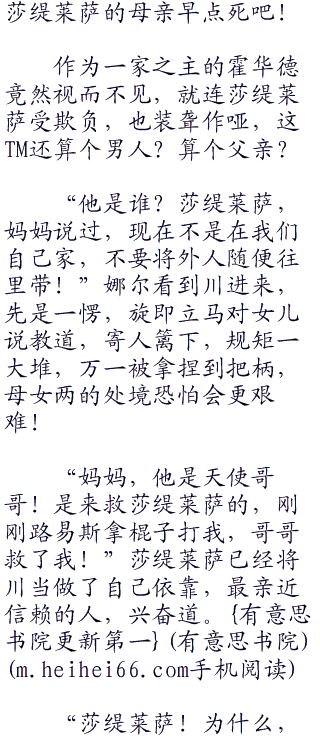 莎缇莱萨的母亲早点死吧！
作为一家之主的霍华德
竟然视而不见，就连莎缇莱
萨受欺负，也装聋作哑，这
TM还算个男人？算个父亲？
“他是谁？莎缇莱萨，
妈妈说过，现在不是在我们
自己家，不要将外人随便往
里带！”娜尔看到川进来，
先是一愣，旋即立马对女儿
说教道，寄人篱下，规矩一
大堆，万一被拿捏到把柄，
母女两的处境恐怕会更艰
难！
“妈妈，他是天使哥
哥！是来救莎缇莱萨的，刚
刚路易斯拿棍子打我，哥哥
救了我！”莎缇莱萨已经将
川当做了自己依靠，最亲近
信赖的人，兴奋道。{有意思
书院更新第一}(有意思书院)
(m.heihei66.com手机阅读)
“莎缇莱萨！为什么，